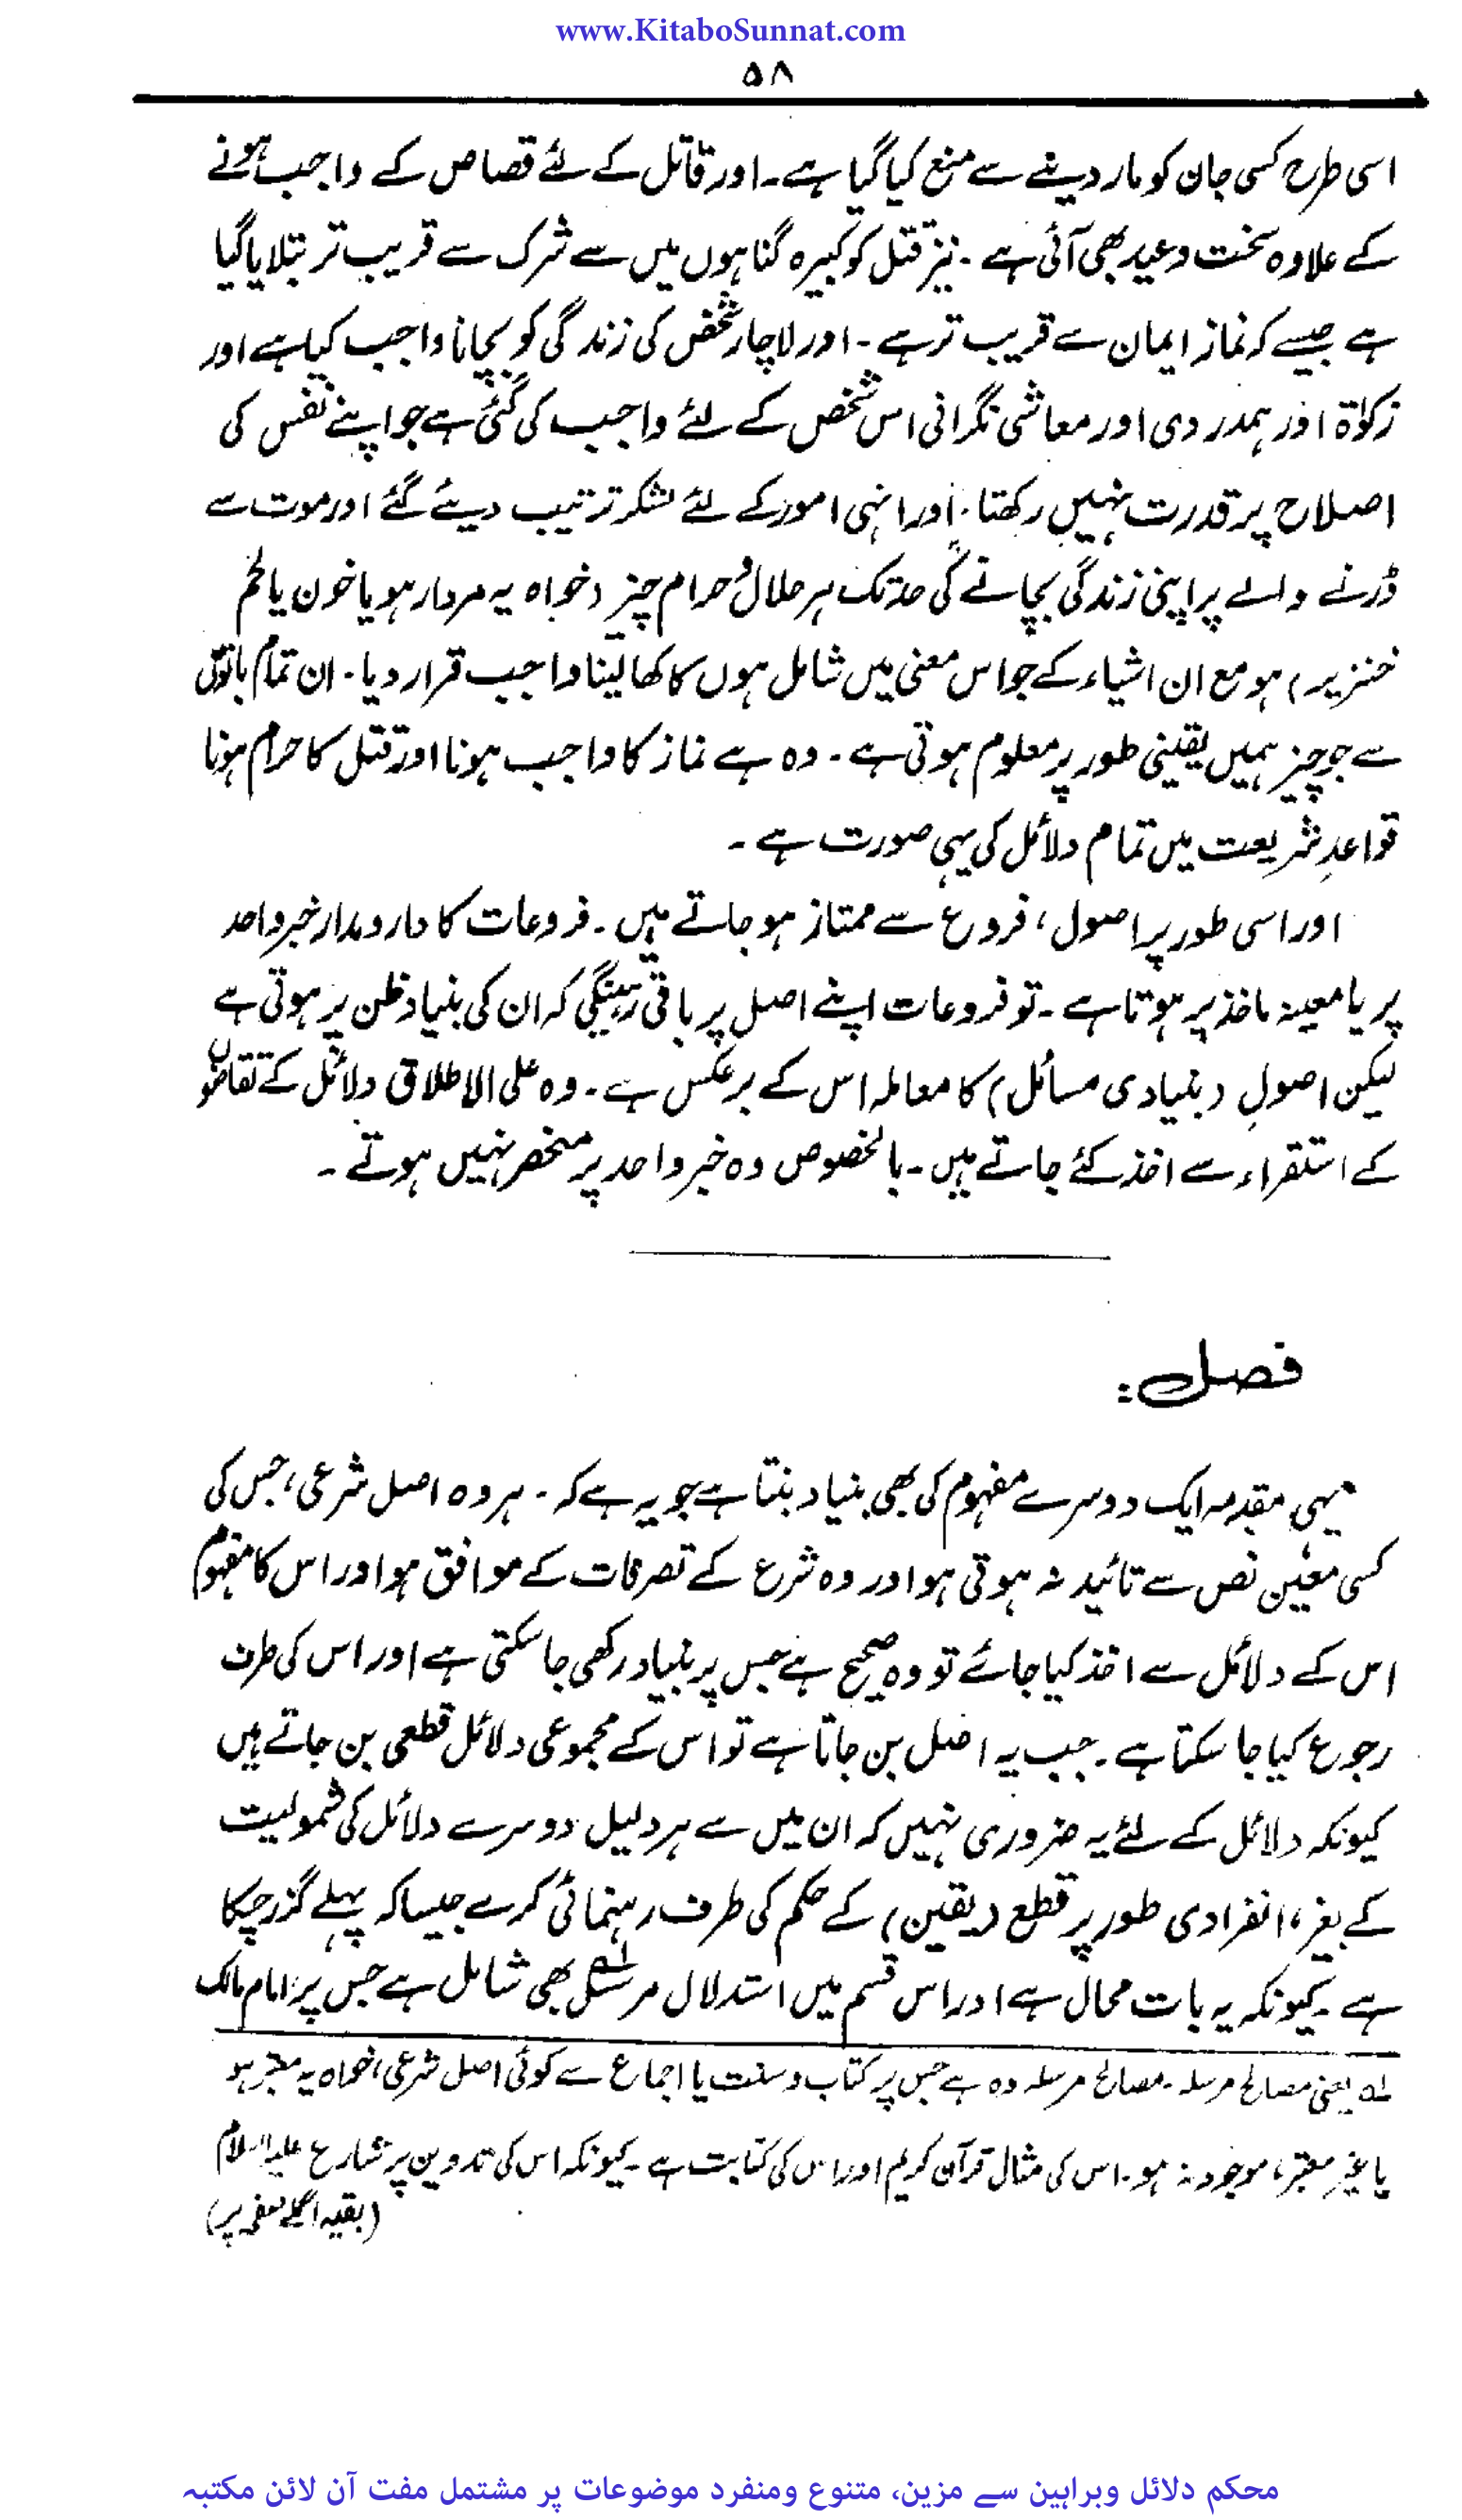 www.KitaboSunnat.com
۵۸
اسی طرح کسی جان کو مار دینے سے منع کیا گیا ہے۔ اور قاتل کے لئے قصاص کے واجب ہونے
کے علاوہ سخت وعید بھی آئی ہے۔ نیز قتل کو کبیرہ گناہوں میں سے شرک سے قریب تر بتلایا گیا
ہے جیسے کہ نماز ایمان سے قریب تر ہے۔ اور لاچار شخص کی زندگی کو بچانا واجب کیا ہے اور
زکوٰۃ اور ہمدردی اور معاشی نگرانی اس شخص کے لئے واجب کی گئی ہے جو اپنے نفس کی
اصلاح پر قدرت نہیں رکھتا۔ اور انہی امور کے لئے لشکر ترتیب دیئے گئے اور موت سے
ڈرنے والے پر اپنی زندگی بچانے کی حد تک ہر حلال و حرام چیز (خواہ یہ مردار ہو یا خون یا لحم
خنزیر) ہو مع ان اشیاء کے جو اس معنی میں شامل ہوں کا کھا لینا واجب قرار دیا۔ ان تمام باتوں
سے جو چیز ہمیں یقینی طور پر معلوم ہوتی ہے۔ وہ ہے نماز کا واجب ہونا اور قتل کا حرام ہونا
قواعدِ شریعت میں تمام دلائل کی یہی صورت ہے۔
اور اسی طور پر اصول، فروع سے ممتاز ہو جاتے ہیں۔ فروعات کا دارومدار خبر واحد
پر یا معینہ ماخذ پر ہوتا ہے۔ تو فروعات اپنے اصل پر باقی رہینگی کہ ان کی بنیاد ظن پر ہوتی ہے
لیکن اصولِ (بنیادی مسائل) کا معاملہ اس کے برعکس ہے۔ وہ علی الاطلاق دلائل کے تقاضوں
کے استقراء سے اخذ کئے جاتے ہیں۔ بالخصوص وہ خبر واحد پر منحصر نہیں ہوتے۔
فصل:
یہی مقدمہ ایک دوسرے مفہوم کی بھی بنیاد بنتا ہے جو یہ ہے کہ۔ ہر وہ اصل شرعی، جس کی
کسی معین نص سے تائید نہ ہوتی ہو اور وہ شرع کے تصرفات کے موافق ہو اور اس کا مفہوم
اس کے دلائل سے اخذ کیا جائے تو وہ صحیح ہے جس پر بنیاد رکھی جا سکتی ہے اور اس کی طرف
رجوع کیا جا سکتا ہے۔ جب یہ اصل بن جاتا ہے تو اس کے مجموعی دلائل قطعی بن جاتے ہیں
کیونکہ دلائل کے لئے یہ ضروری نہیں کہ ان میں سے ہر دلیل دوسرے دلائل کی شمولیت
کے بغیر، انفرادی طور پر قطع (یقین) کے حکم کی طرف رہنمائی کرے جیسا کہ پہلے گزر چکا
ہے۔ کیونکہ یہ بات محال ہے اور اس قسم میں استدلال مرسل لہ بھی شامل ہے جس پر امام مالک
لہ یعنی مصالح مرسلہ۔ مصالح مرسلہ وہ ہے جس پر کتاب و سنت یا اجماع سے کوئی اصل شرعی، خواہ یہ معتبر ہو
یا غیر معتبر، موجود نہ ہو۔ اس کی مثال قرآن کریم اور اس کی کتابت ہے۔ کیونکہ اس کی تدوین پر شارع علیہ السلام
(بقیہ اگلے صفحہ پر)
محکم دلائل وبراہین سے مزین، متنوع ومنفرد موضوعات پر مشتمل مفت آن لائن مکتبہ